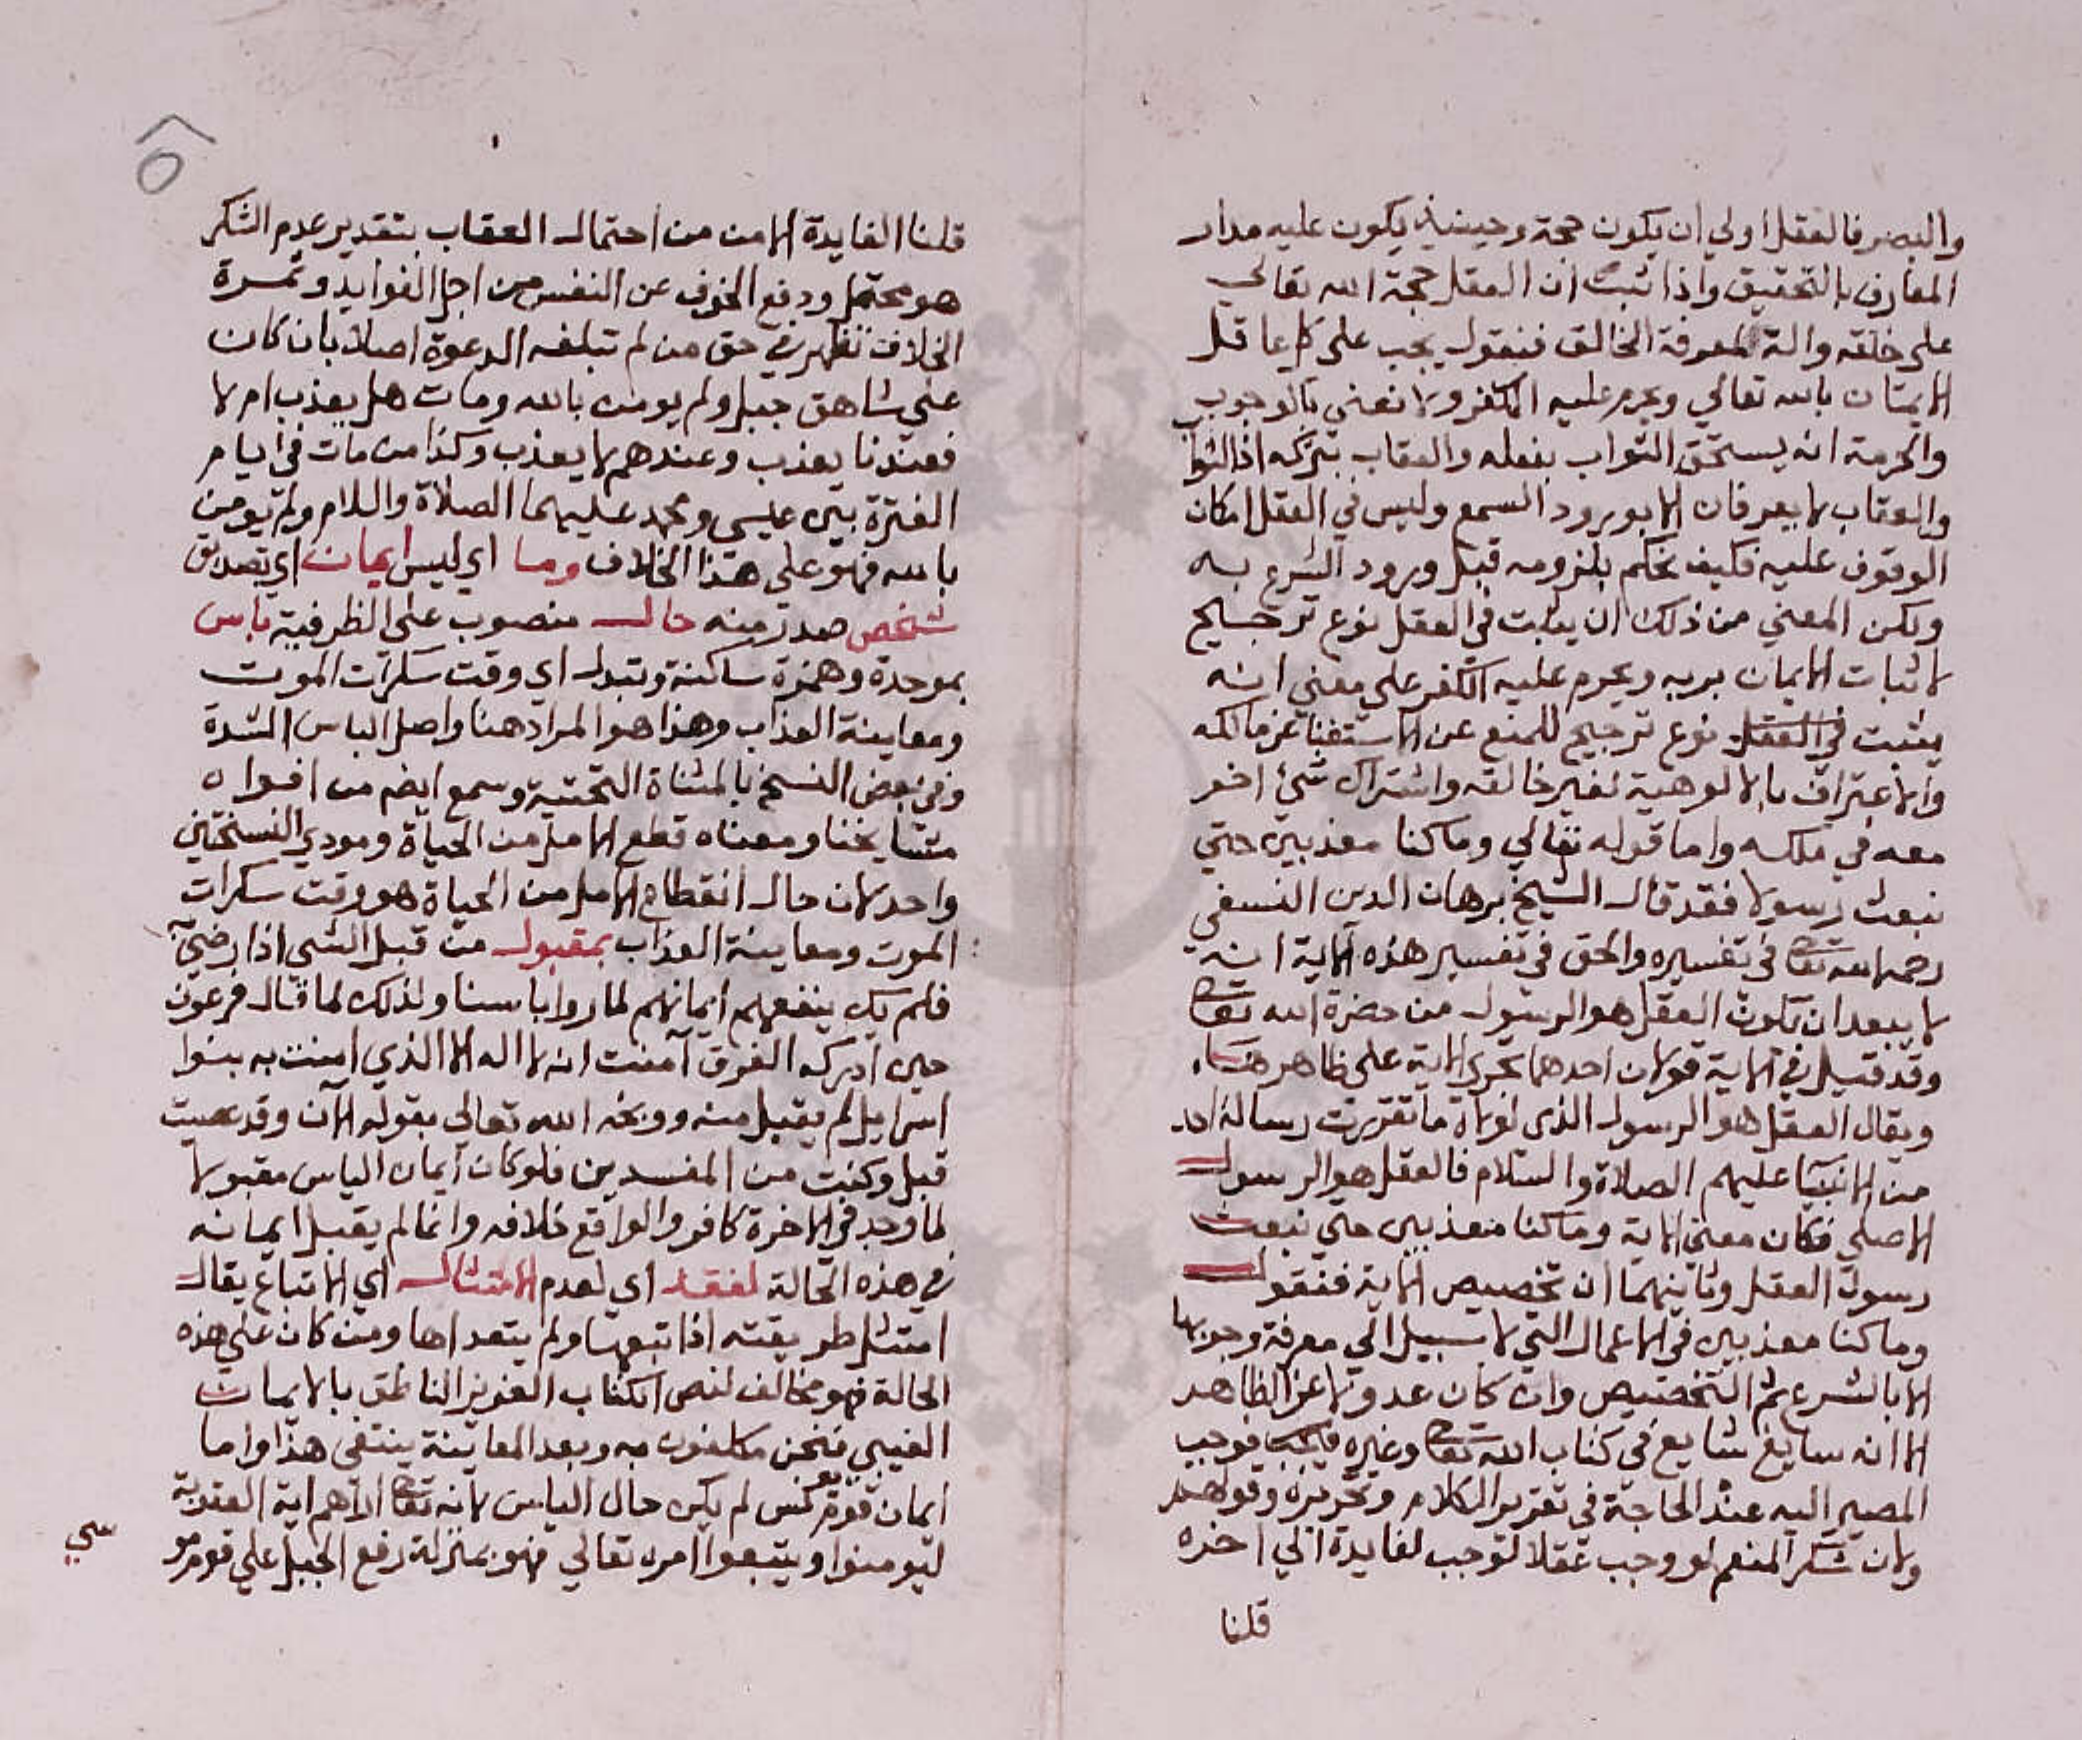 والبصر فالعقل اولي ان يكون حجة وحينيذ يكون عليه مدار
المعارف بالتحقيق واذا ثبت ان العقل حجة الله تعالي
علي خلقه والة لمعرفة الخالق فنقول يجب علي كل عاقل
الايمان بالله تعالي ويحرم عليه الكفر ولا نعني بالوجوب
والحرمة انه يستحق الثواب بفعله والعقاب بتركه اذ الثوا
والعقاب لا يعرفان الا بورود السمع وليس في العقل امكان
الوقوف عليه فكيف نحكم بلزومه قبل ورود الشرع به
ولكن المعني من ذلك ان يثبت في العقل نوع ترجيح
لاثبات الايمان بربه ويحرم عليه الكفر علي معني انه
يثبت في العقل نوع ترجيح للمنع عن الاستغنا عن مالكه
والاعتراف بالالوهية لغير خالقه واشتراك شيئ اخر
معه في ملكه واما قوله تعالي وما كنا معذبين حتي
نبعث رسولا فقد قال الشيخ برهان الدين النسفي
رحمه الله تعا في تفسيره والحق في تفسير هذه الاية انه
لا يبعد ان يكون العقل هو الرسول من حضرة الله تعا
وقد قيل في الاية قولان احدهما يجري الاية علي ظاهرها
ويقال العقل هو الرسول الذي لولاه ما تقررت رسالة احد
من الانبيا عليهم الصلاة والسلام فالعقل هو الرسول
الاصلي فكان معني الاية وما كنا معذبين حتي نبعث
رسول العقل وثانيهما ان تخصيص الاية فنقول
وما كنا معذبين في الاعمال التي لا سبيل الي معرفة وجوبها
الا بالشرع ثم التخصيص وان كان عدولا عن الظاهر
الا انه سايغ شايع في كتاب الله تعا وغيره فوجب
المصير اليه عند الحاجة في تقرير الكلام وتحريره وقولهم
ولان شكر المنعم لو وجب عقلا لوجب لفايدة الي اخره
قلنا
قلنا الفايدة الامن من احتمال العقاب بتقدير عدم الشكر
هو محتمل ودفع الخوف عن النفس من اجل الفوايد وثمرة
الخلاف تظهر في حق من لم تبلغه الدعوة اصلا بان كان
علي شاهق جبل ولم يومن بالله ومات هل يعذب ام لا
فعندنا يعذب وعندهم لا يعذب وكذا من مات في ايام
الفترة بين عيسي ومحمد عليهما الصلاة والسلام ولم يومن
بالله فهو علي هذا الخلاف وما اي ليس ايمان اي تصديق
شخص صدر منه حال منصوب علي الظرفية باس
بموحدة وهمزة ساكنة وتبدل اي وقت سكرات الموت
ومعاينة العذاب وهذا هو المراد هنا واصل الباس الشدة
وفي بعض النسخ بالمثناة التحتية وسمع ايضم من افواه
مشايخنا ومعناه قطع الامل من الحياة ومودي النسختين
واحد لان حال انقطاع الامل من الحياة هو وقت سكرات
الموت ومعاينة العذاب بمقبول من قبل الشي اذا رضي
فلم يك ينفعهم ايمانهم لما روا باسنا ولذلك لما قال فرعون
حين ادركه الغرق آمنت انه لا اله الا الذي امنت به بنوا
اسرايل لم يقبل منه ووبخه الله تعالي بقوله الآن وقد عصيت
قبل وكنت من المفسدين فلو كان ايمان الباس مقبولا
لما وجد في الاخرة كافر والواقع خلافه وانما لم يقبل ايمانه
في هذه الحالة لفقد اي لعدم الامتثال اي الاتباع يقال
امتثل طريقته اذا تبعها ولم يتعداها ومن كان علي هذه
الحالة فهو مخالف لنص الكتاب العزيز الناطق بالايمان
الغيبي فنحن مكلفون به وبعد المعاينة ينتفي هذا واما
ايمان قوم يونس لم يكن حال الباس لانه تعا اراهم اية العقوبة
ليومنوا ويتبعوا امره تعالي فهو بمنزلة رفع الجبل علي قوم مو
سي